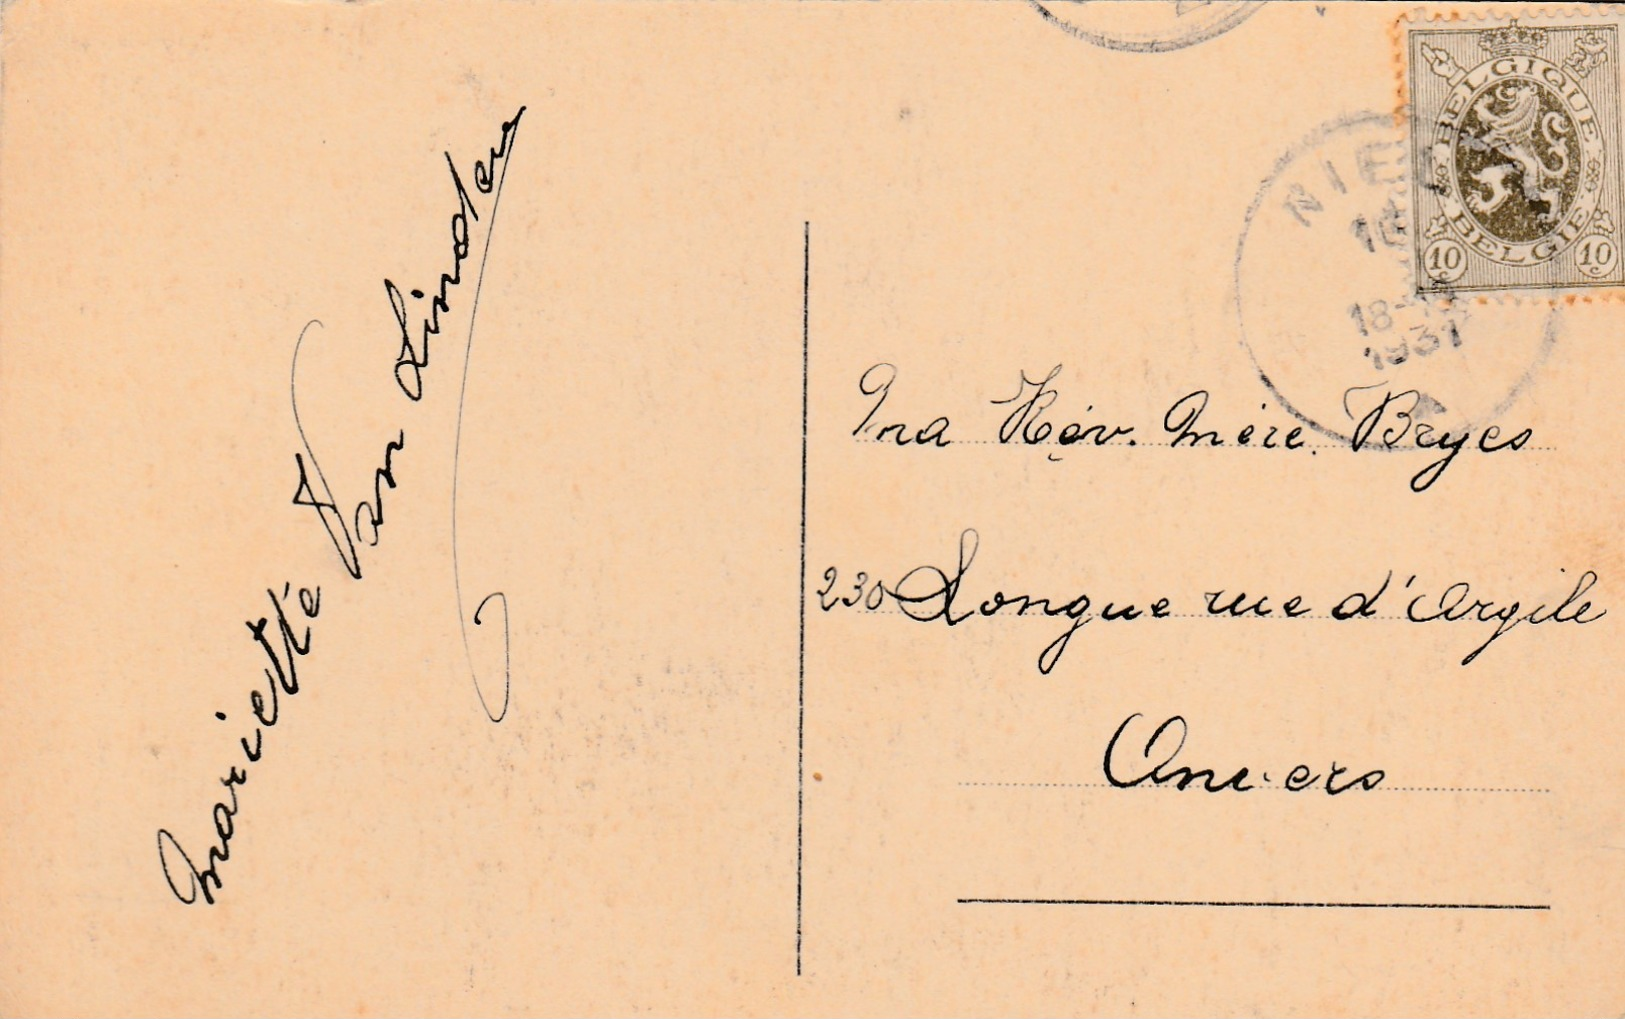 Mariette Van Linden
BELGIQUE
BELGIE
10 c
10 c
NIEL
18-19
1931
Ma Rév. Mère. Bryes
230 Longue rue d'Argile
Anvers